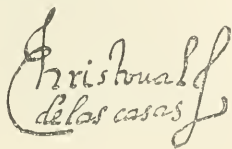 Christoual
de las casas